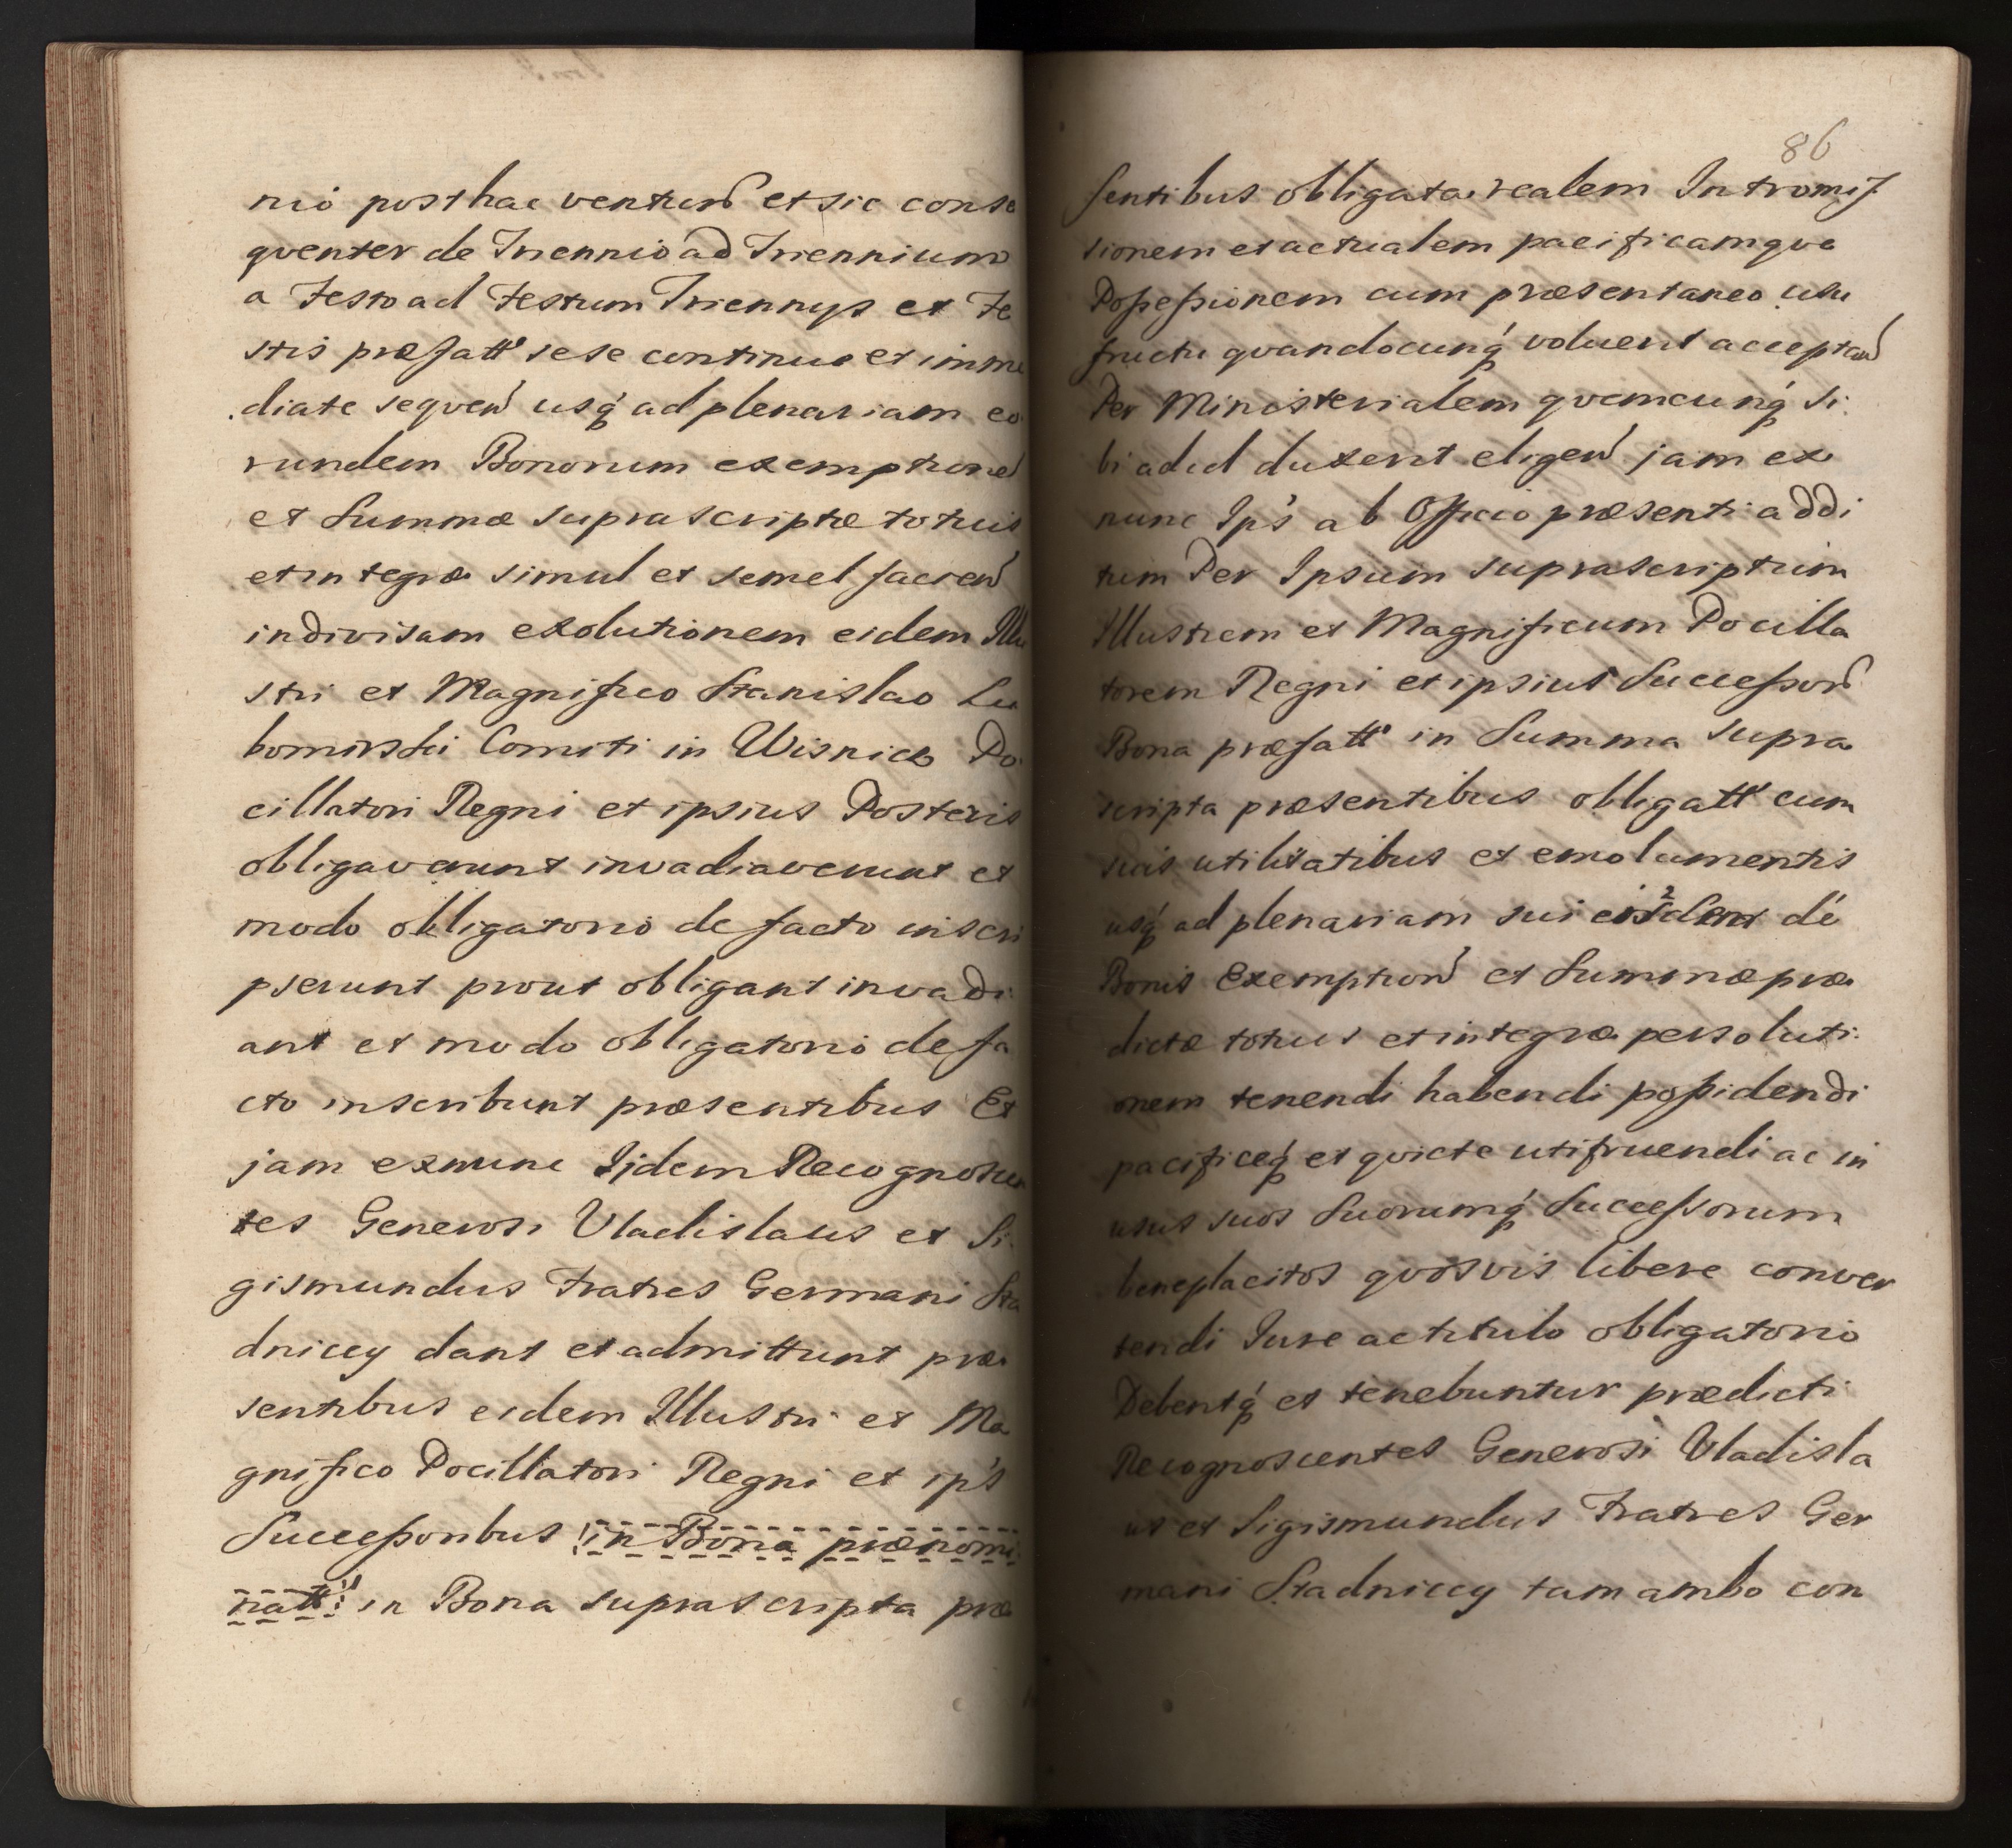 nio posthac ventur et sic conse
qventer de Triennio ad Triennium
a Festo ad Festum Triennys et Fe
stis præfatt sese continue et imme
diate seqven usq ad plenariam eo
rundem Bonorum exemptione
et Summæ suprascriptæ totius
et integræ simul et semel facien
indivisam exolutionem eidem Illu
stri et Magnifico Stanislao Lu
bomirski Comiti in Wisnicz Po
cillatori Regni et ipsius Posteris
obligaverunt invadiaverunt et
modo obligatorio de facto inscri
pserunt prout obligant invadi
ant et modo obligatorio de fa
cto inscribunt præsentibus Et
jam exnunc Ijdem Recognoscen
tes Generosi Vladislaus et Si
gismundus Fratres Germani Sta
dniccy dant et admittunt præ
sentibus eidem Illustri et Ma
gnifico Pocillatori Regni et ip's
Successoribus in Bona prænomi
natt in Bona suprascripta præ
86
sentibus obligata realem Intromis
sionem et actualem pacificamqve
Possessionem cum præsentaneo usu
fructu qvandocunq voluerit acceptan
Per Ministerialem qvemcunq si
bi ad id duxerit eligen jam ex
nunc Ip's ab Officio præsenti addi
tum Per Ipsum suprascriptum
Illustrem et Magnificum Pocilla
torem Regni et ipsius Successor
Bona præfatt in Summa supra
scripta præsentibus obligatt cum
suis utilitatibus et emolumentis
usq ad plenariam sui eisdem de
Bonis Exemption et Summæ præ
dictæ totius et integræ persoluti
onem tenendi habendi possidendi
pacificeq et qviete utifruendi ac in
usus suos Suorumq Successorum
beneplacitos qvosvis libere conver
tendi Iure ac titulo obligatorio
Debentq et tenebuntur prædicti
Recognoscentes Generosi Vladisla
us et Sigismundus Fratres Ger
mani Stadniccy tam ambo con